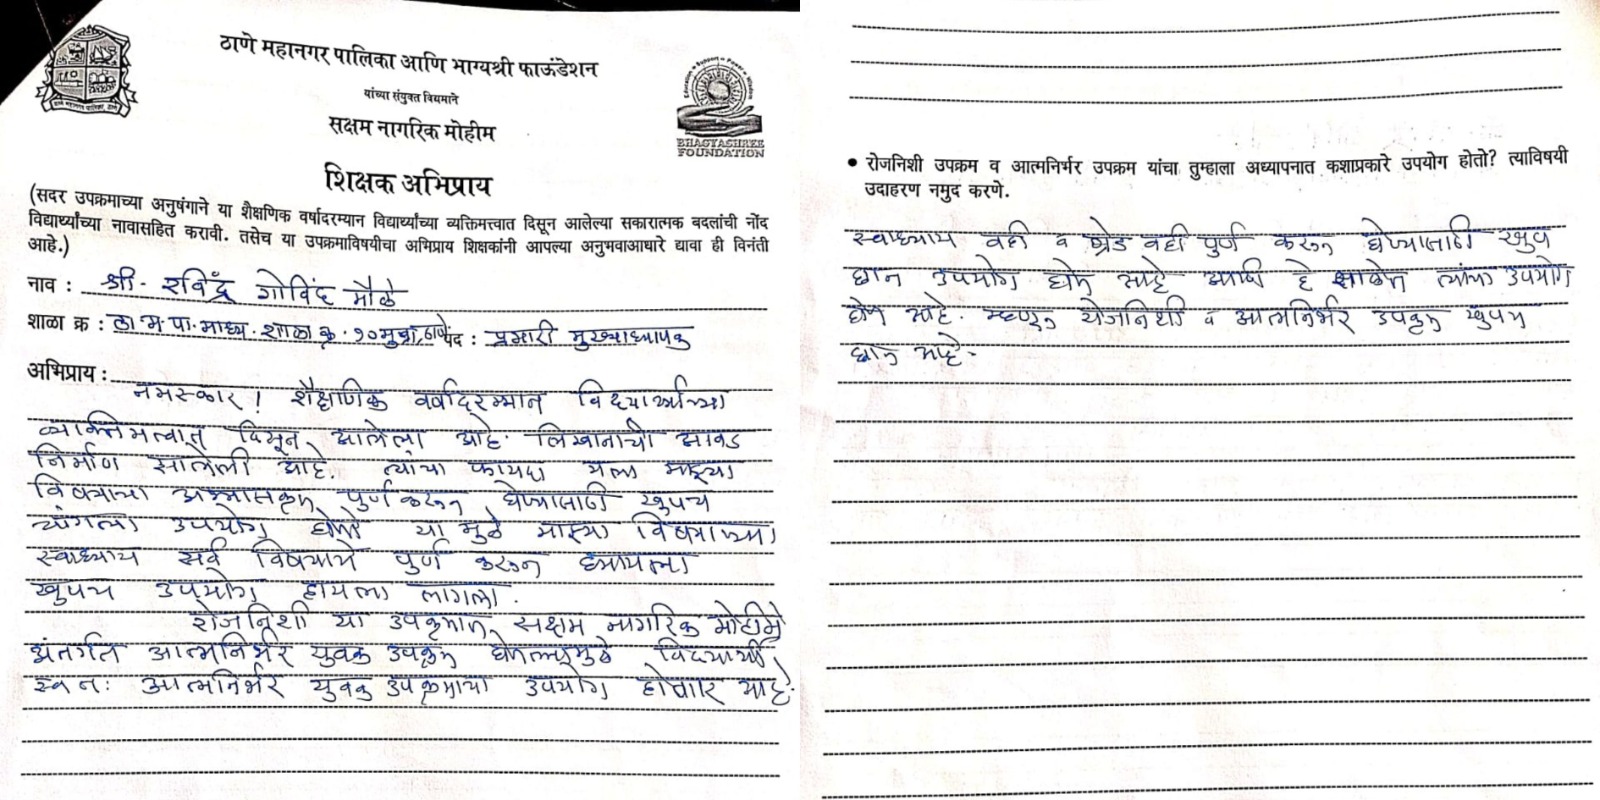 ठाणे महानगर पालिका आणि भाग्यश्री फाऊंडेशन
यांच्या संयुक्त विद्यमाने
सक्षम नागरिक मोहीम
BHAGYASHREE
FOUNDATION
शिक्षक अभिप्राय
(सदर उपक्रमाच्या अनुषंगाने या शैक्षणिक वर्षादरम्यान विद्यार्थ्यांच्या व्यक्तिमत्त्वात दिसून आलेल्या सकारात्मक बदलांची नोंद
विद्यार्थ्यांच्या नावासहित करावी. तसेच या उपक्रमाविषयीचा अभिप्राय शिक्षकांनी आपल्या अनुभवाआधारे द्यावा ही विनंती
आहे.)
नाव : श्री. रविंद्र गोविंद मौळे
शाळा क्र : ठा.म.पा.माध्य.शाळा क्र.१०मुंब्रा,ठाणे पद : प्रभारी मुख्याध्यापक
अभिप्राय :
नमस्कार! शैक्षणिक वर्षादरम्यान विद्यार्थ्यांच्या
व्यक्तिमत्वात दिसून आलेला आहे. लिखानाची आवड
निर्माण झालेली आहे. त्यांचा फायदा मला माझ्या
विषयाचा अभ्यासक्रम पुर्ण करून घेण्यासाठी खुपच
चांगला उपयोग होतो या मुळे माझ्या विषयाच्या
स्वाध्याय सर्व विषयाचे पुर्ण करून घ्यायला
खुपच उपयोग व्हायला लागला.
रोजनिशी या उपक्रमात सक्षम नागरिक मोहीमे
अंतर्गत आत्मनिर्भर युवक उपक्रम घेतल्यामुळे विद्यार्थी
स्वतः आत्मनिर्भर युवक उपक्रमाचा उपयोग होणार आहे.
• रोजनिशी उपक्रम व आत्मनिर्भर उपक्रम यांचा तुम्हाला अध्यापनात कशाप्रकारे उपयोग होतो? त्याविषयी
उदाहरण नमुद करणे.
स्वाध्याय वही व ग्रेड वही पुर्ण करून घेण्यासाठी खुप
छान उपयोग होत आहे आणि हे शाळेत त्यांचा उपयोग
होत आहे. म्हणून रोजनिशी व आत्मनिर्भर उपक्रम खुपच
छान आहे.